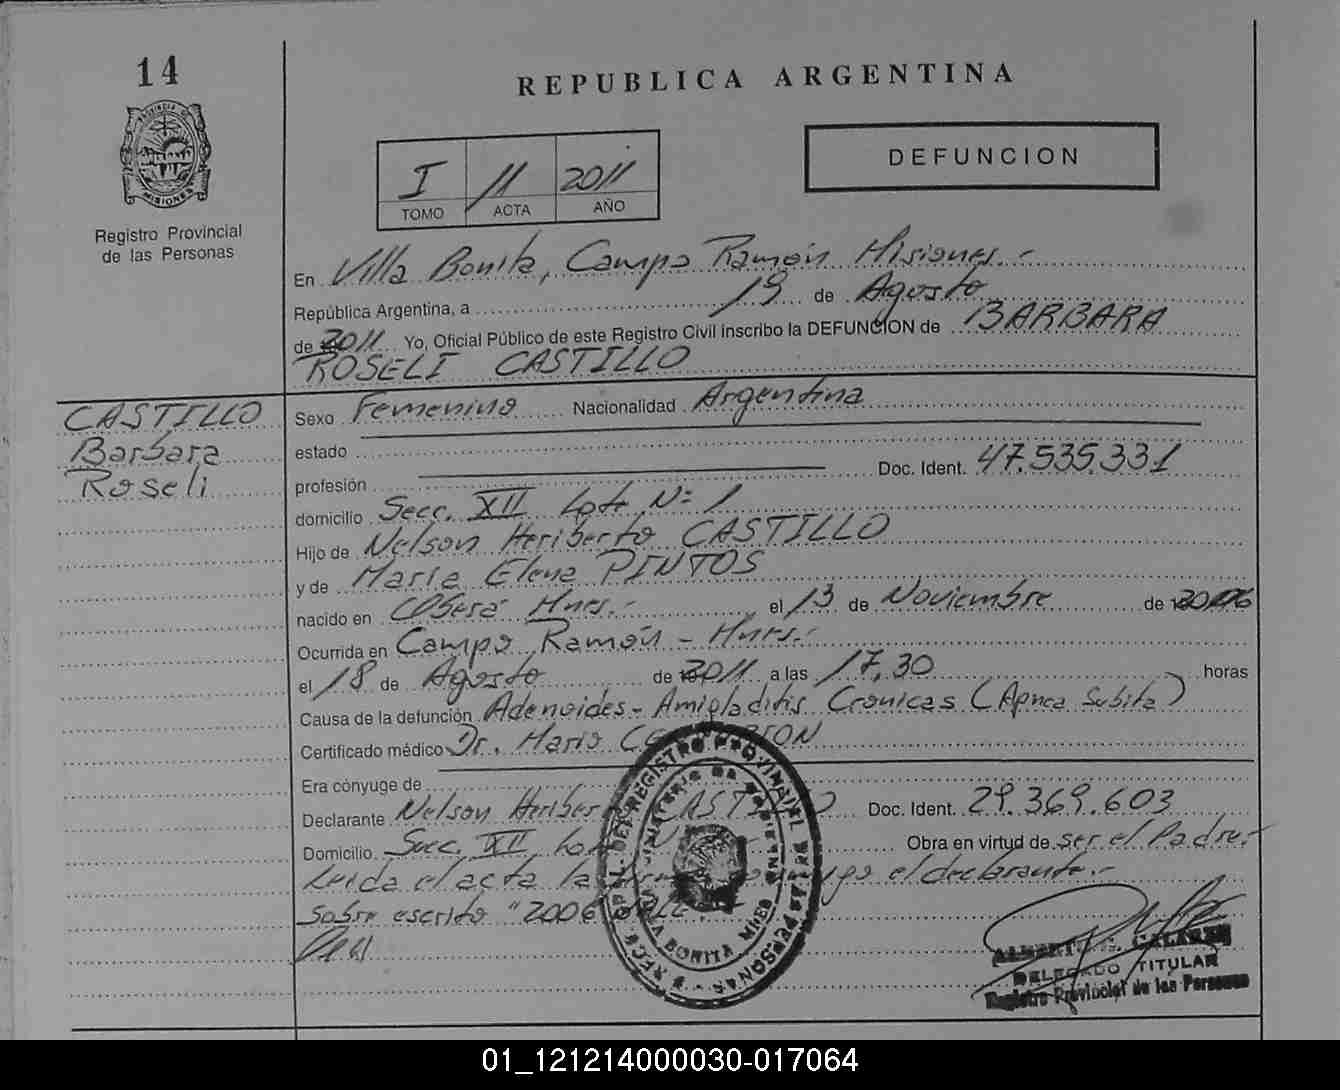 14
REPUBLICA ARGENTINA
PROVINCIA DE
MISIONES
Registro Provincial
de las Personas
I 11 2011
TOMO ACTA AÑO
DEFUNCION
En Villa Bonita, Campo Ramón Misiones.-
República Argentina, a 19 de Agosto
de 2011 Yo, Oficial Público de este Registro Civil inscribo la DEFUNCION de BARBARA
ROSELI CASTILLO
CASTILLO
Barbara
Roseli
Sexo Femenino Nacionalidad Argentina
estado
profesión Doc. Ident. 47.535.331
domicilio Secc. XII Lote Nº 1
Hijo de Nelson Heriberto CASTILLO
y de Maria Elena PINTOS
nacido en Oberá Mnes.- el 13 de Noviembre de 2006
Ocurrida en Campo Ramón - Mnes.-
el 18 de Agosto de 2011 a las 17,30 horas
Causa de la defunción Adenoides - Amigladitis Cronicas (Apnea Subita)
Certificado médico Dr. Mario
Era cónyuge de
Declarante Nelson Heriberto CASTILLO Doc. Ident. 29.369.603
Domicilio Secc. XII Obra en virtud de ser el Padre.-
Leida el acta la el declarante.-
Sobre escrito "2006
REGISTRO PROVINCIAL DE LAS PERSONAS
VILLA BONITA MNES
DELEGADO TITULAR
Registro Provincial de las Personas
01_121214000030-017064